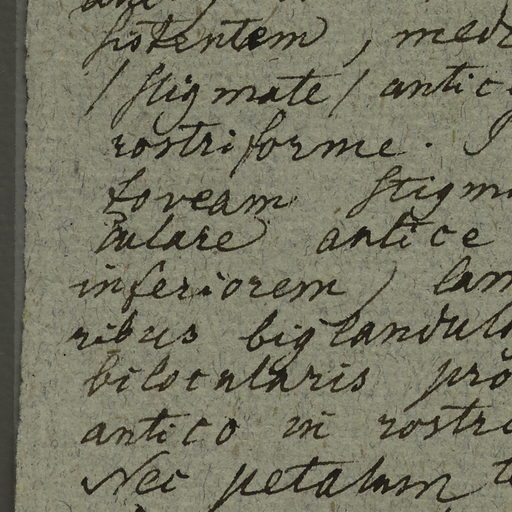 sistentem, med
/stigmate/ antic
rostriforme.
foveam stigm
culare antice
inferiorem, lam
ribus biglandul
bilocularis pro
antico in rostr
Nec petalum t